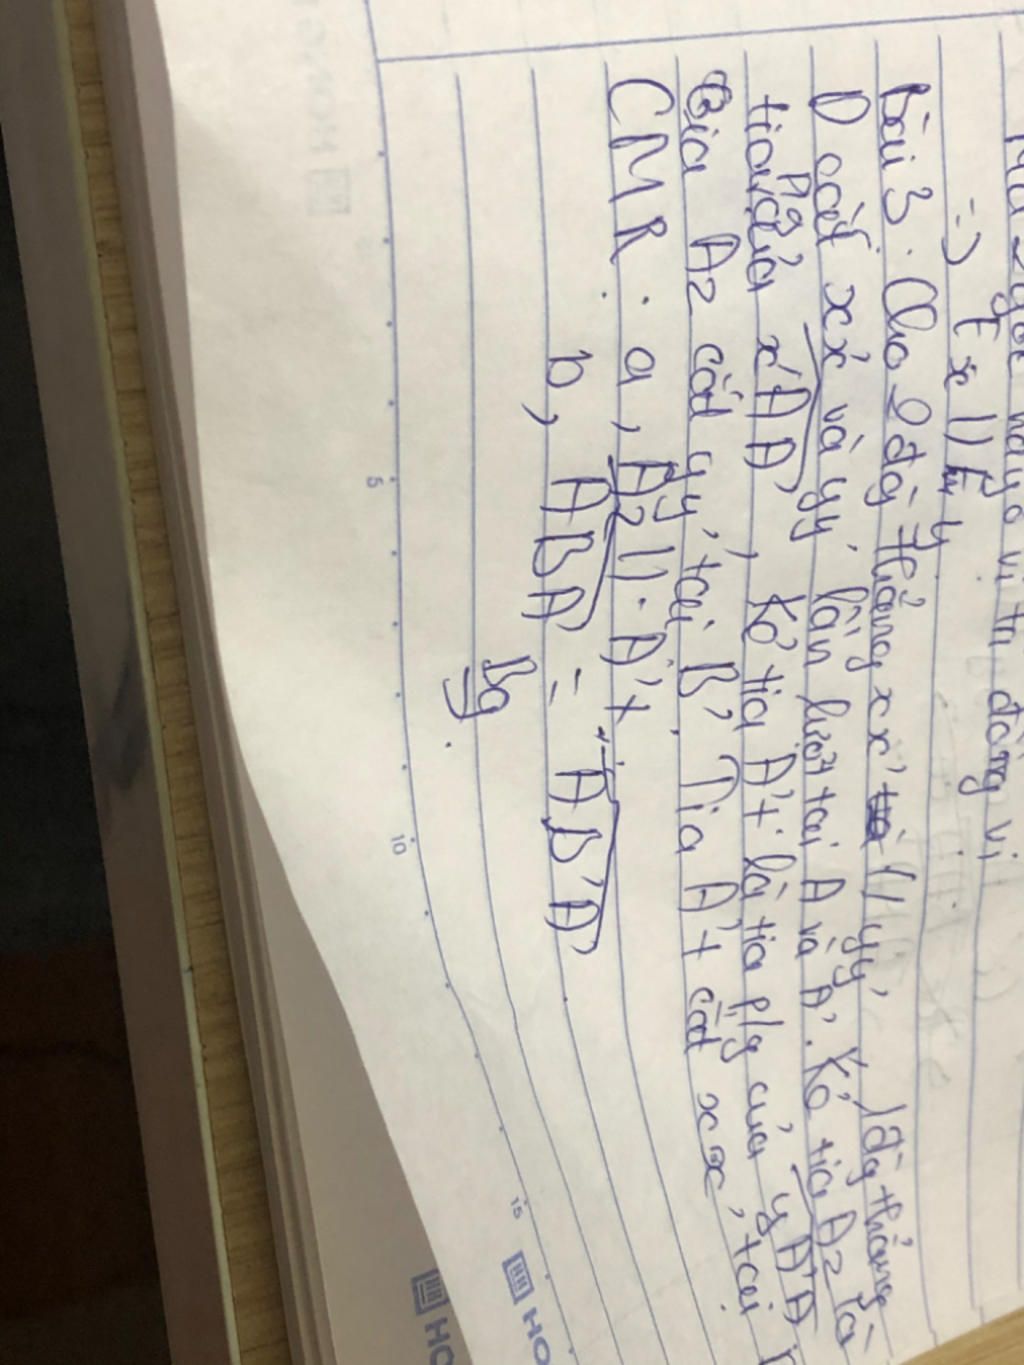 vị trí đồng vị
=> Ex // Fy
Bài 3. Cho 2 đg thẳng xx' // yy', 1 đg thẳng
D cắt xx' và yy' lần lượt tại A và A'. Kẻ tia Az là
tia p/g của x'AA', kẻ tia A't là tia p/g của yA'A
Tia Az cắt yy' tại B', Tia A't cắt xx' tại
CMR. a, Az // A't
b, ABA' = AB'A'
Bg
5
10
15
HO
HO